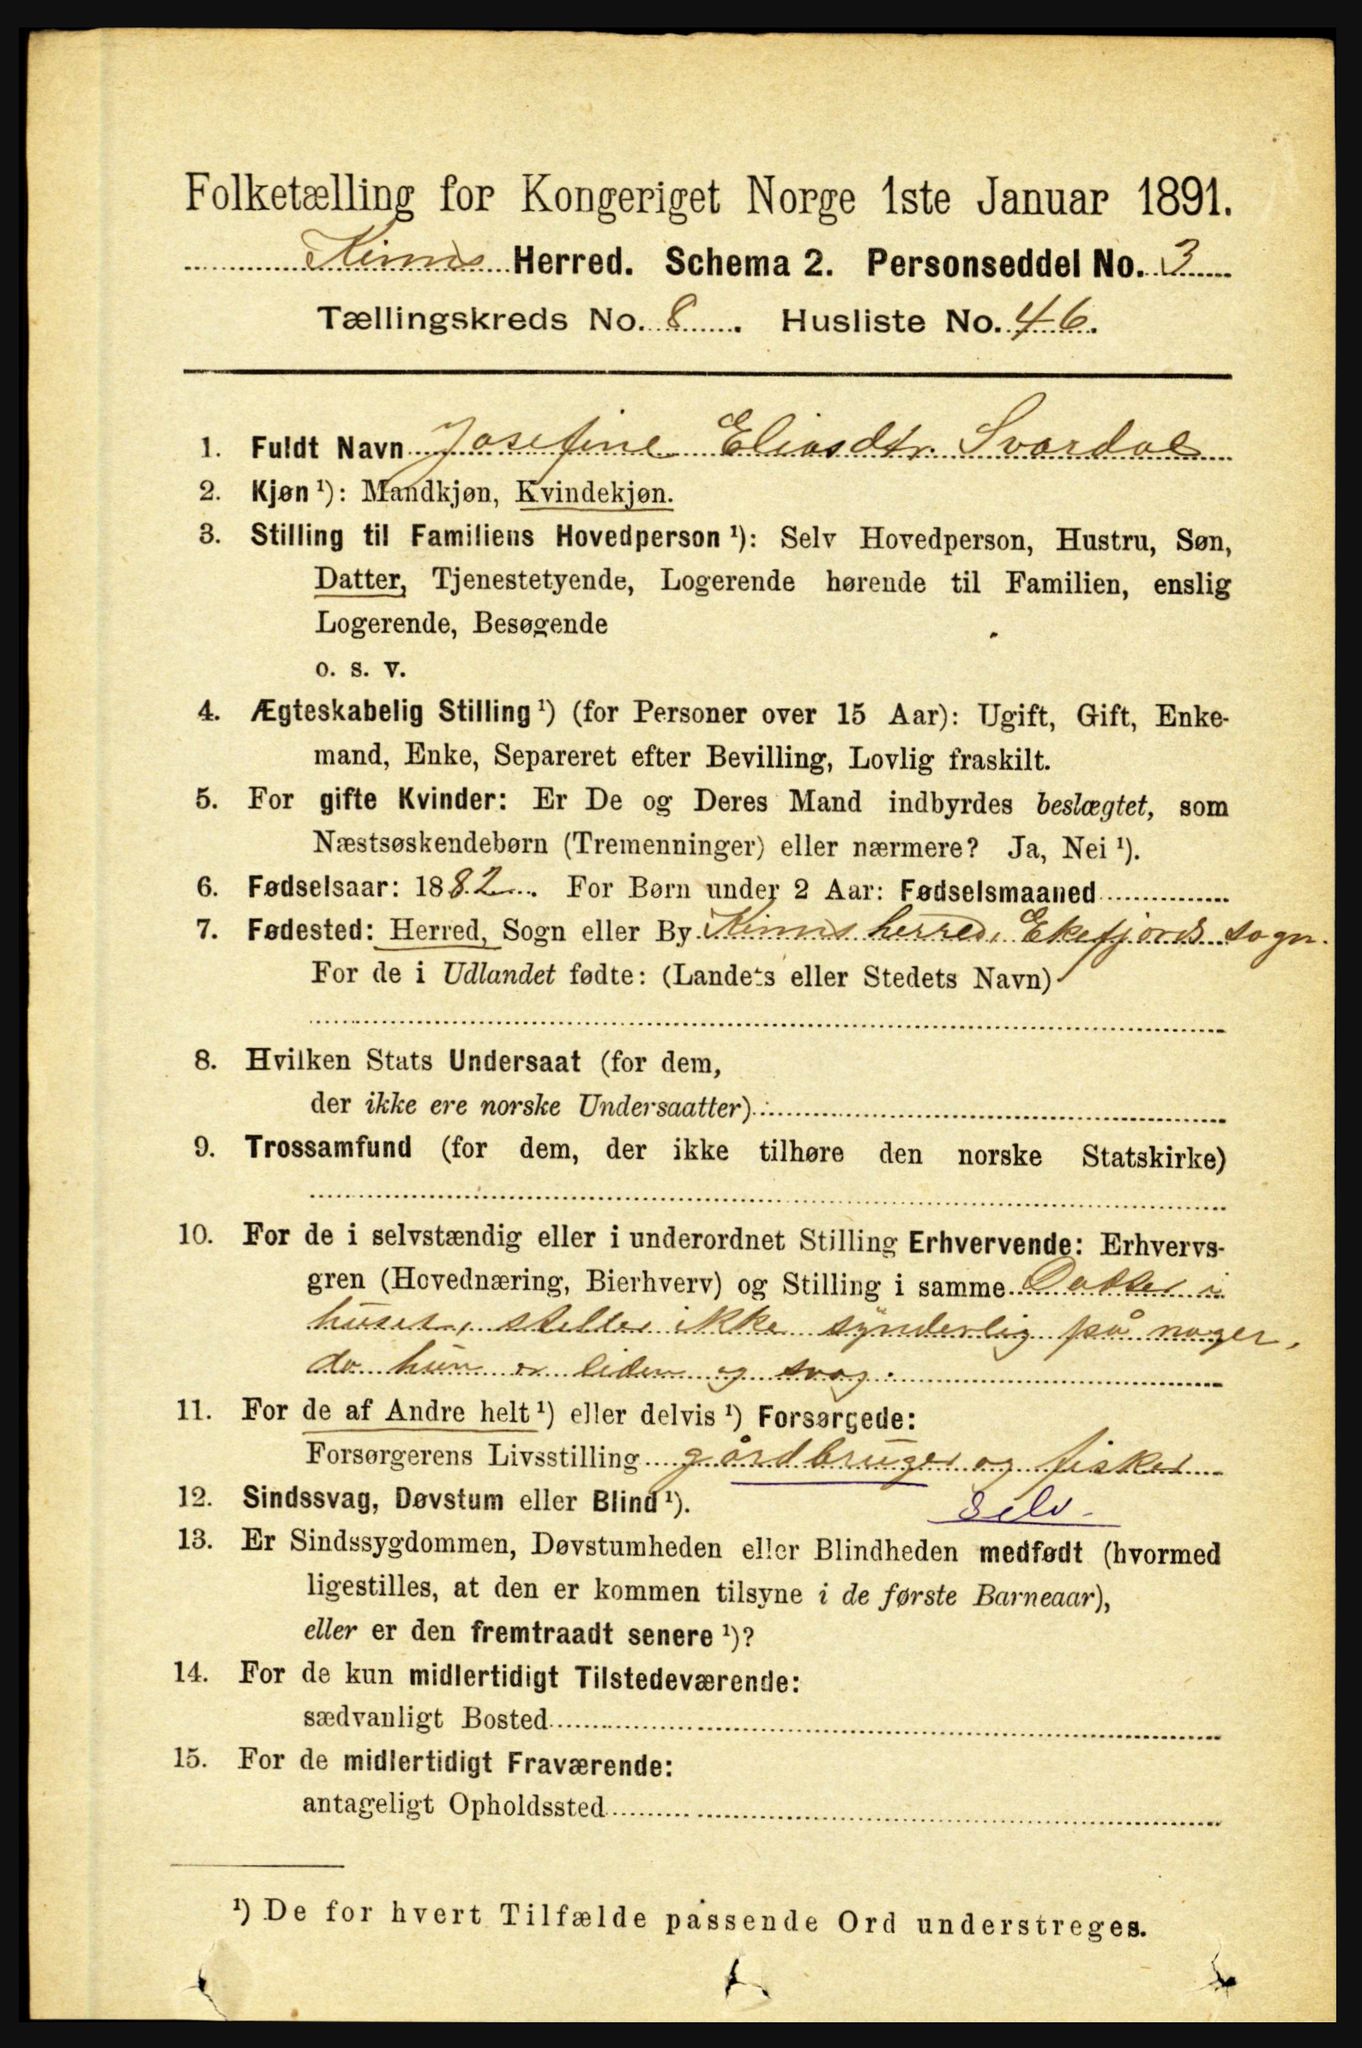 Folketælling for Kongeriget Norge 1ste Januar 1891.
Kinns Herred. Schema 2. Personseddel No. 3
Tællingskreds No. 8. Husliste No. 46.
1. Fuldt Navn Josefine Eliasdtr. Svardal
2. Kjøn ¹): Mandkjøn, Kvindekjøn.
3. Stilling til Familiens Hovedperson ¹): Selv Hovedperson, Hustru, Søn,
Datter, Tjenestetyende, Logerende hørende til Familien, enslig
Logerende, Besøgende
o. s. v.
4. Ægteskabelig Stilling ¹) (for Personer over 15 Aar): Ugift, Gift, Enke-
mand, Enke, Separeret efter Bevilling, Lovlig fraskilt.
5. For gifte Kvinder: Er De og Deres Mand indbyrdes beslægtet, som
Næstsøskendebørn (Tremenninger) eller nærmere? Ja, Nei ¹).
6. Fødselsaar: 1882. For Børn under 2 Aar: Fødselsmaaned
7. Fødested: Herred, Sogn eller By Kinns herred, Ekefjords sogn.
For de i Udlandet fødte: (Landets eller Stedets Navn)
8. Hvilken Stats Undersaat (for dem,
der ikke ere norske Undersaatter)
9. Trossamfund (for dem, der ikke tilhøre den norske Statskirke)
10. For de i selvstændig eller i underordnet Stilling Erhvervende: Erhvervs-
gren (Hovednæring, Bierhverv) og Stilling i samme Datter i
huset, steller ikke synderlig på noget,
da hun er liden og svag.
11. For de af Andre helt ¹) eller delvis ¹) Forsørgede:
Forsørgerens Livsstilling gårdbruger og fisker
12. Sindssvag, Døvstum eller Blind ¹). Selv.
13. Er Sindssygdommen, Døvstumheden eller Blindheden medfødt (hvormed
ligestilles, at den er kommen tilsyne i de første Barneaar),
eller er den fremtraadt senere ¹)?
14. For de kun midlertidigt Tilstedeværende:
sædvanligt Bosted
15. For de midlertidigt Fraværende:
antageligt Opholdssted
¹) De for hvert Tilfælde passende Ord understreges.